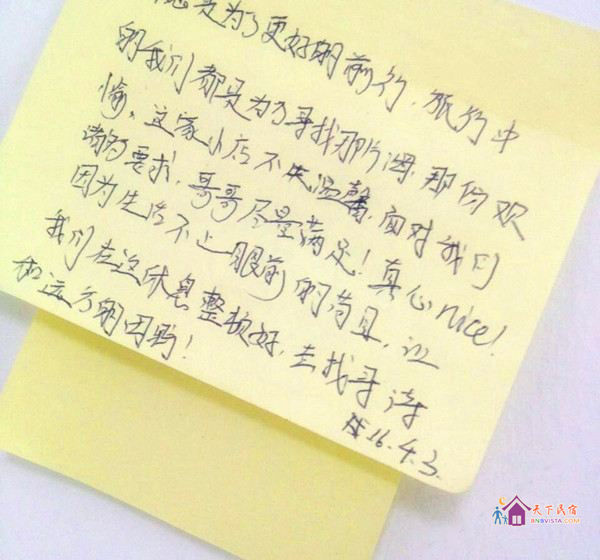 息是为了更好的前行,旅行中
的我们都是为了寻找那片海,那份欢
愉。这家小店不失温馨,面对我们
诸多要求,哥哥尽量满足!真心nice!
因为生活不止眼前的苟且,让
我们在这休息整顿好,去找寻诗
和远方的田野!
16.4.3.
天下民宿
BNBVISTA.COM